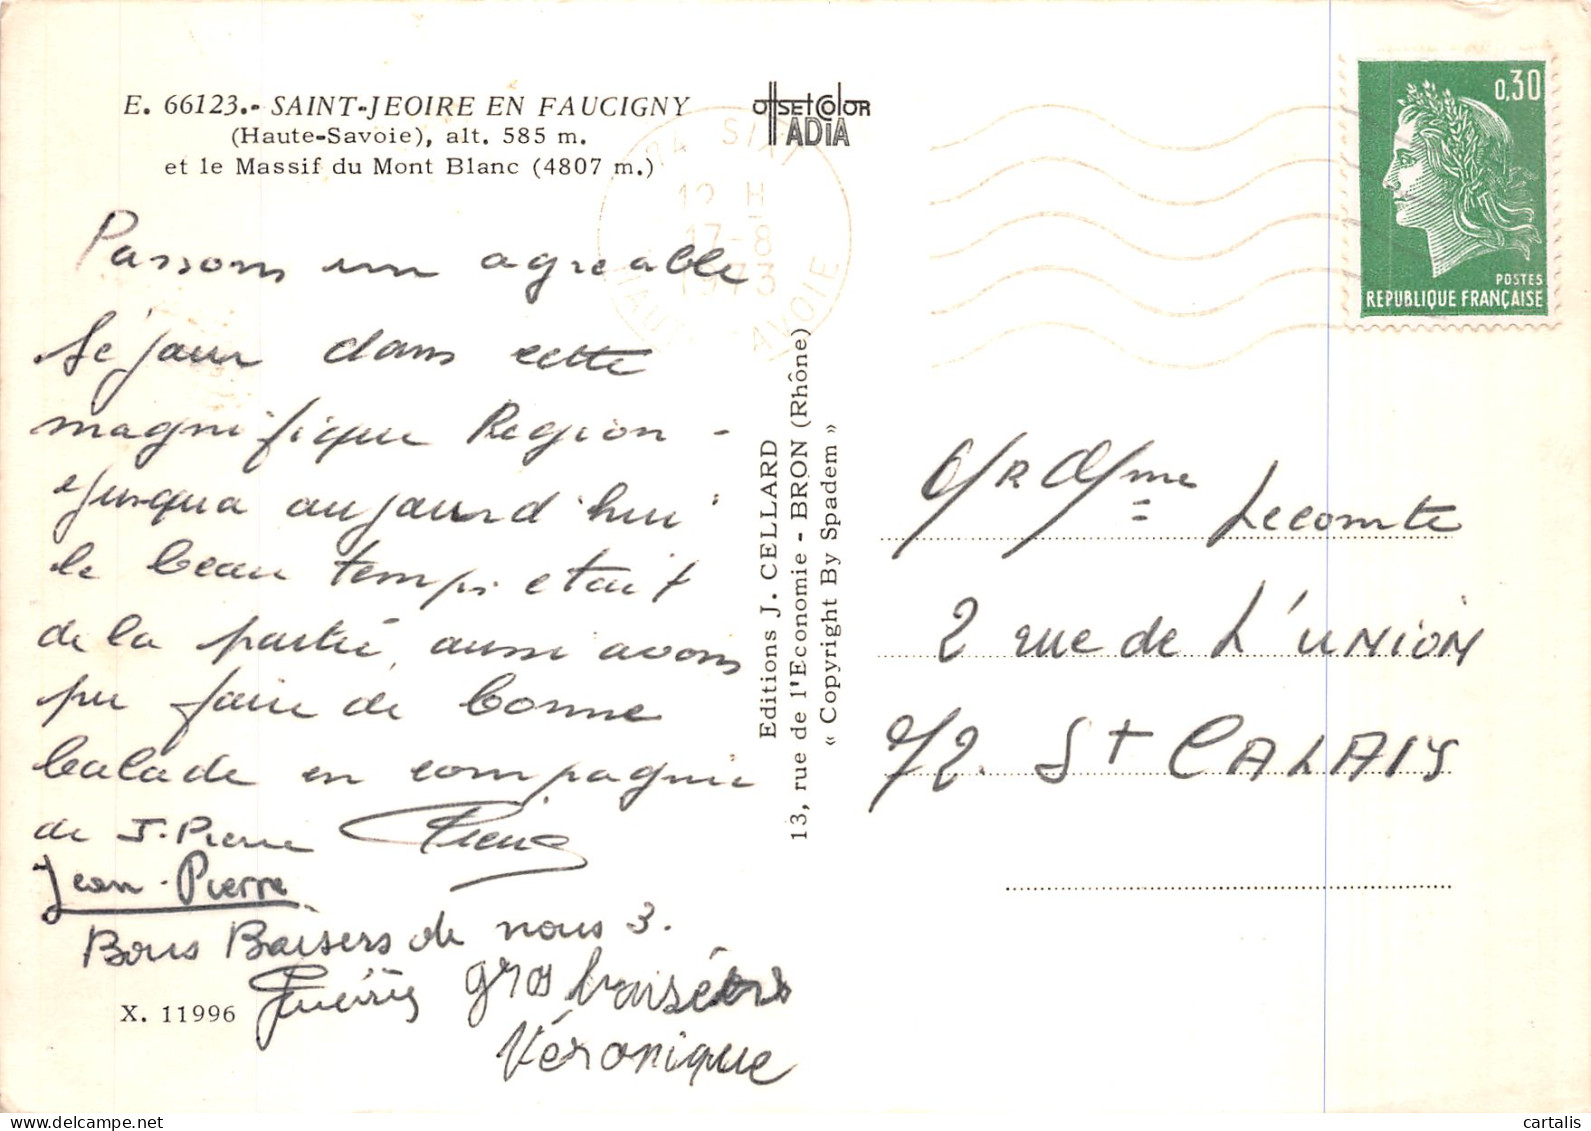 E. 66123.- SAINT-JEOIRE EN FAUCIGNY
(Haute-Savoie), alt. 585 m.
et le Massif du Mont Blanc (4807 m.)
OffsetColor
ADIA
12 H
17-8
1973
0,30
POSTES
REPUBLIQUE FRANÇAISE
Passons un agreable
Séjour dans cette
magnifique Region -
jusqua aujourd'hui
le beau temps etait
de la partie, aussi avons
pu faire de bonne
balade en compagnie
de J-Pierre
Jean-Pierre
Bons Baisers de nous 3.
gros baisers
Véronique
X. 11996
Editions J. CELLARD
13, rue de l'Economie - BRON (Rhône)
« Copyright By Spadem »
Lecomte
2 rue de L'UNION
72. St CALAIS
cartalis
www.delcampe.net